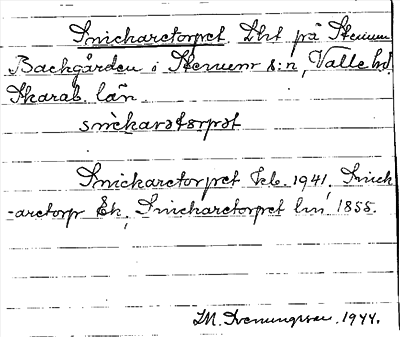 Snickaretorpet. Lht på Stenum
Backgården i Stenums s:n, Valle hd.
Skarab. län.
snìckarətɔrpət
Snickaretorpet kb. 1941, Snick-
-aretorp Ek, Snickaretorpet lm 1855.
I.M. Svenungsson. 1944.